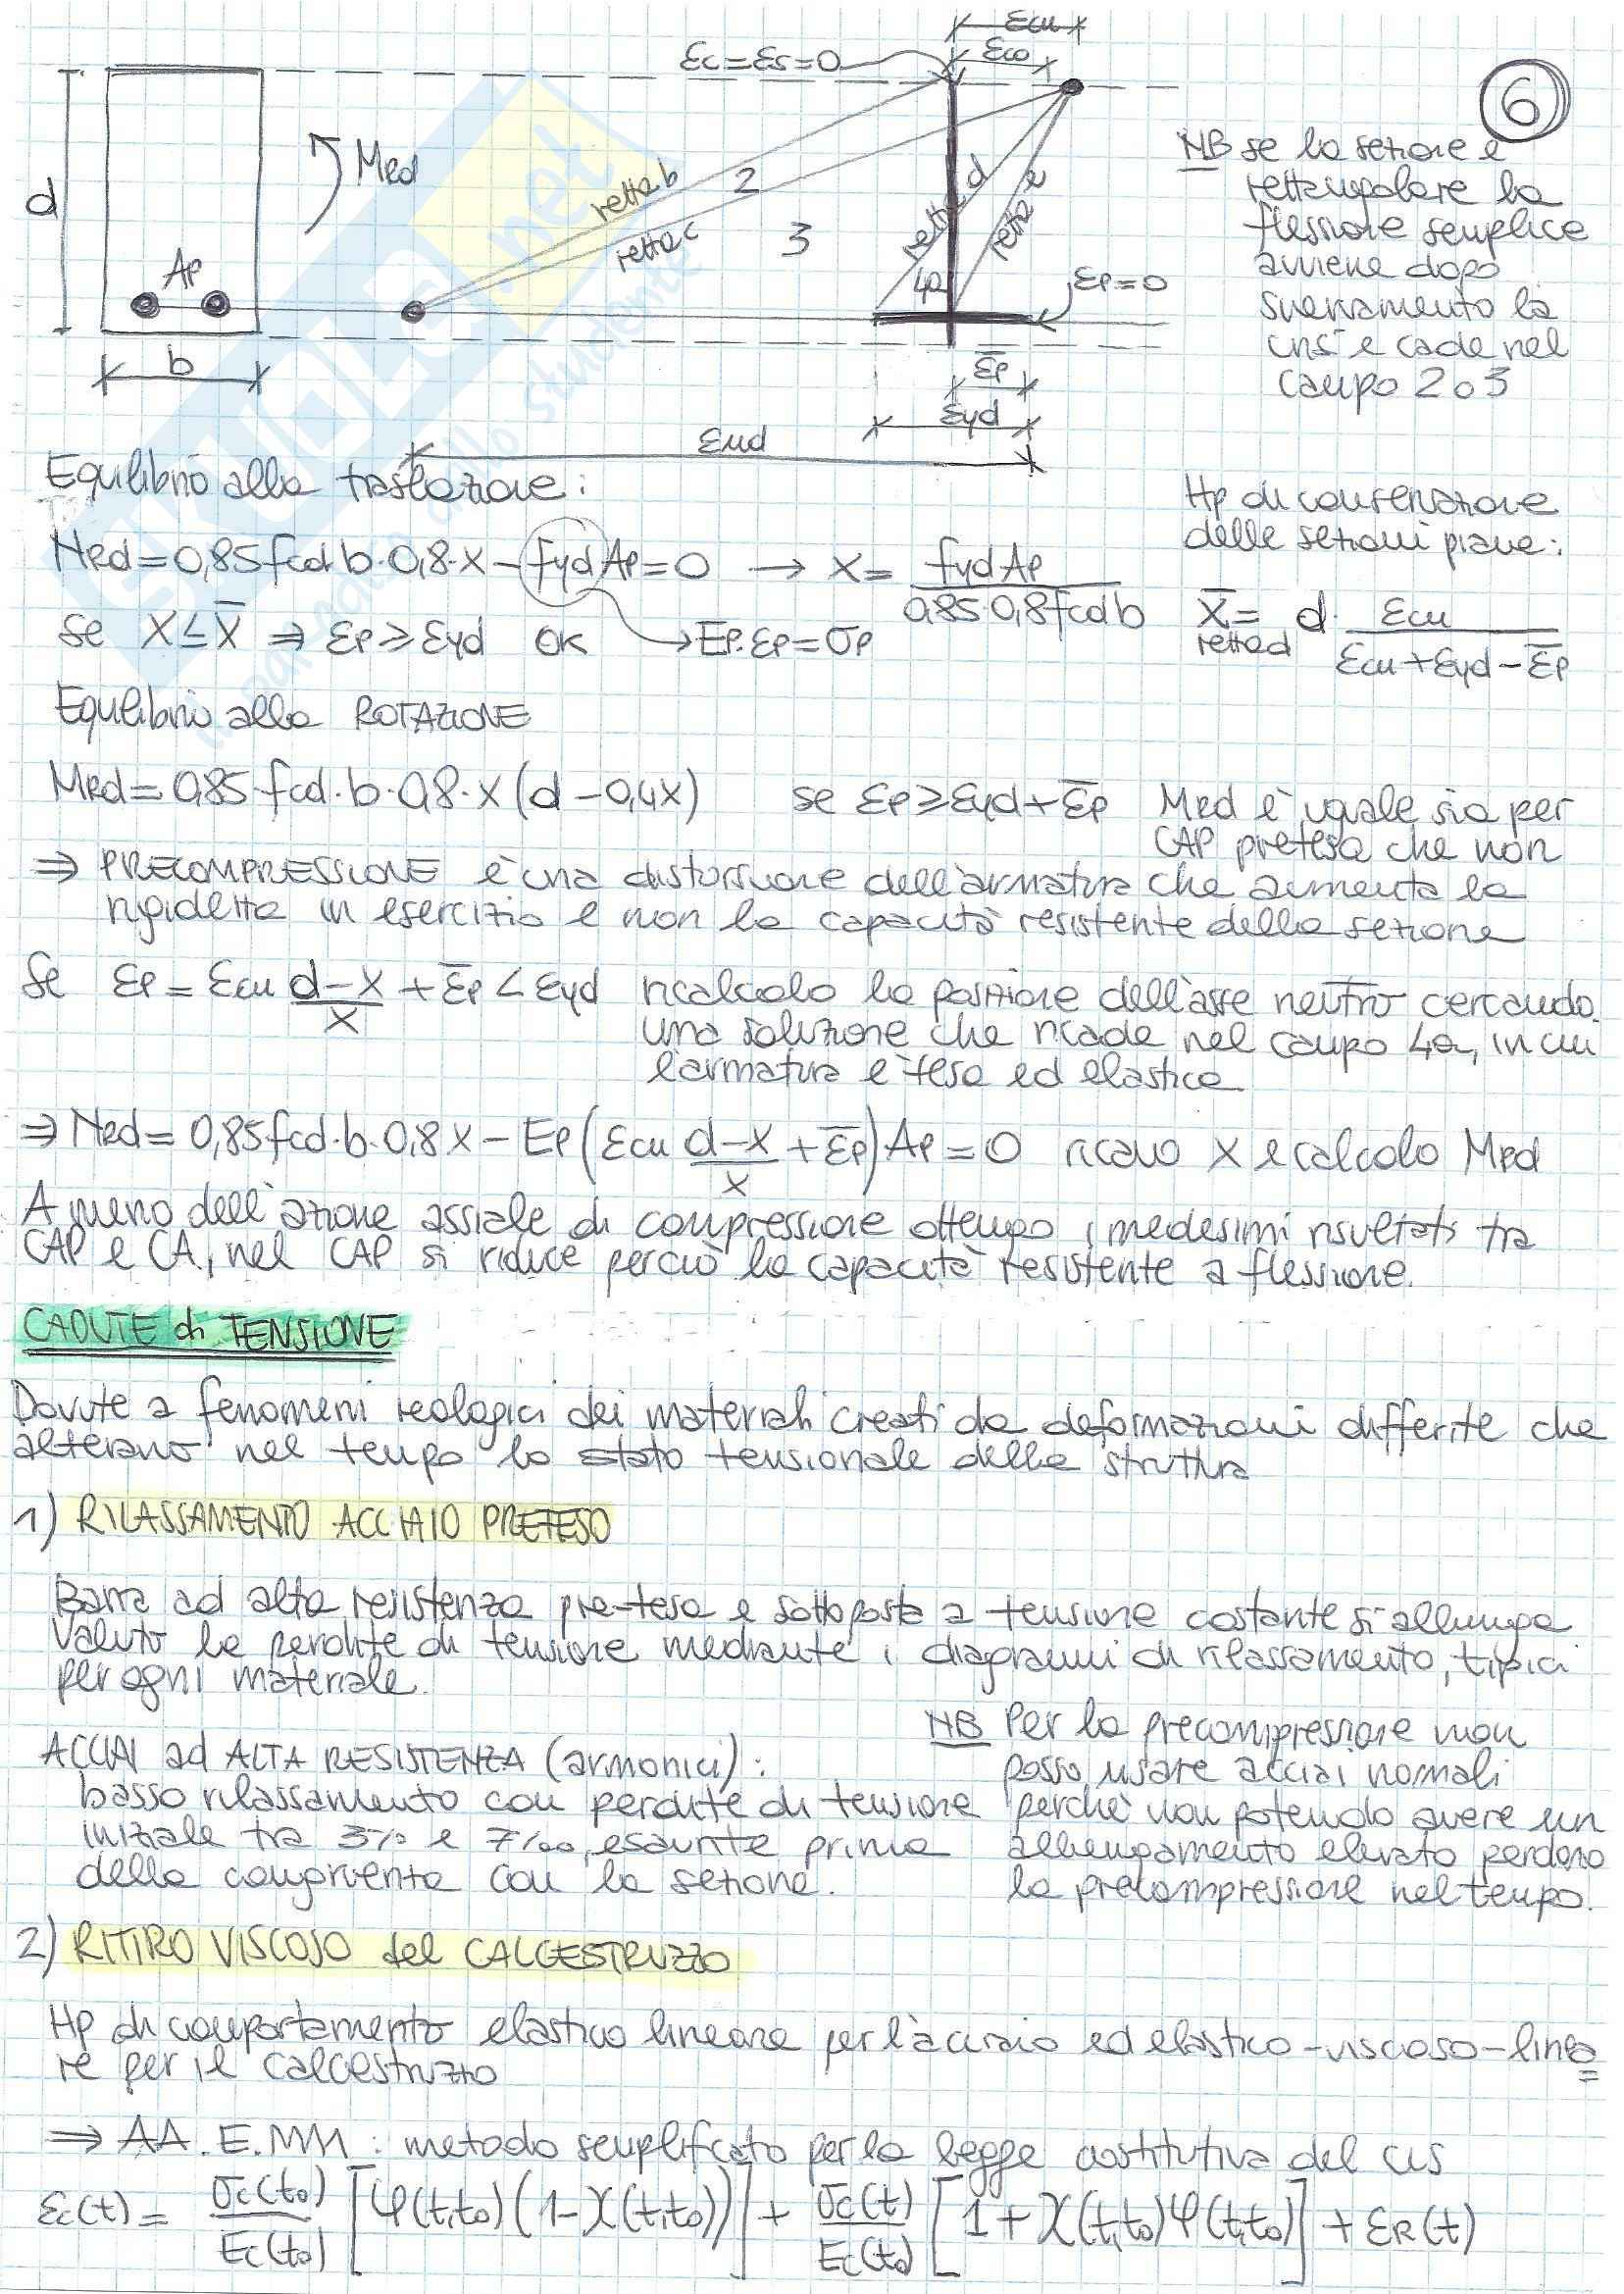 6
εcu
εco
εc=εs=0
d
Med
Ap
b
retta b
2
retta c
3
retta d
retta e
4a
εp=0
ε̅p
εyd
εud
NB se la sezione è
rettangolare la
flessione semplice
avviene dopo
snervamento la
crisi e cade nel
campo 2 o 3
SKUOLA.net
il paradiso dello studente
Equilibrio alla traslazione:
NRd=0,85fcd·b·0,8·x-fydAp=0 → x= fydAp / 0,85·0,8fcdb
se x≤x̅ ⇒ εp≥εyd OK →Ep·εp=σp
Hp di conservazione
delle sezioni piane:
x̅= d· εcu / εcu+εyd-ε̅p
retta d
Equilibrio alla ROTAZIONE
MRd=0,85·fcd·b·0,8·x(d-0,4x) se εp≥εyd+ε̅p MRd è uguale sia per
CAP pretesa che non
⇒ PRECOMPRESSIONE è una distorsione dell'armatura che aumenta la
rigidetta in esercizio e non la capacità resistente della sezione
Se εp=εcu d-x / x +ε̅p<εyd ricalcolo la posizione dell'asse neutro cercando
una soluzione che ricade nel campo 4a, in cui
l'armatura è tesa ed elastica
⇒NRd=0,85fcd·b·0,8x-Ep(εcu d-x / x +ε̅p)Ap=0 ricavo x e calcolo MRd
A meno dell'azione assiale di compressione ottengo i medesimi risultati tra
CAP e CA, nel CAP si riduce perciò la capacità resistente a flessione.
CADUTE di TENSIONE
Dovute a fenomeni reologici dei materiali creati da deformazioni differite che
alterano nel tempo lo stato tensionale della struttura
1) RILASSAMENTO ACCIAIO PRETESO
Barra ad alta resistenza pre-tesa e sottoposta a tensione costante si allunga
Valuto le perdite di tensione mediante i diagrammi di rilassamento, tipici
per ogni materiale.
ACCIAI ad ALTA RESISTENZA (armonici):
basso rilassamento con perdite di tensione
iniziale tra 3% e 7‰, esaurite prima
della congruenza con la sezione.
NB Per la precompressione non
posso usare acciai normali
perchè non potendo avere un
allungamento elevato perdono
la precompressione nel tempo.
2) RITIRO VISCOSO del CALCESTRUZZO
Hp di comportamento elastico lineare per l'acciaio ed elastico-viscoso-linea
re per il calcestruzzo
⇒ AA.E.MM: metodo semplificato per la legge costitutiva del cls
εc(t)= σc(t0) / Ec(t0) [φ(t,t0)(1-χ(t,t0))] + σc(t) / Ec(t0) [1+χ(t,t0)φ(t,t0)] + εR(t)